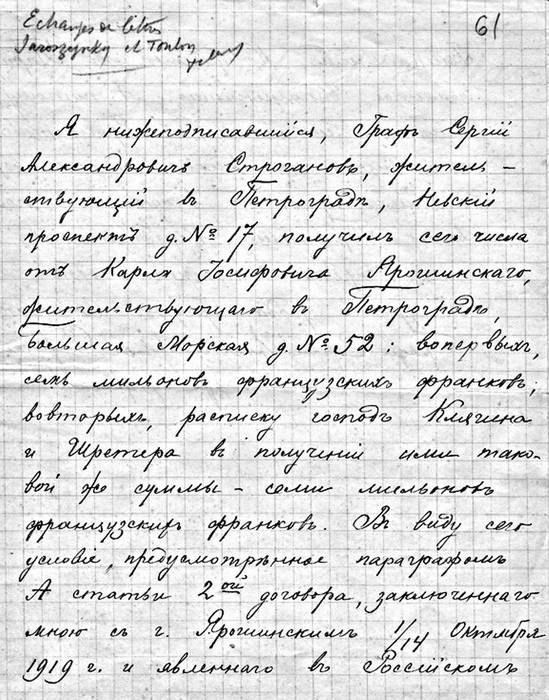 Echanges de lettres
Jaroszynsky et Toulon
61
Я нижеподписавшійся, Графъ Сергій
Александровичъ Строгановъ, житель-
ствующий въ Петроградѣ, Невскій
проспектъ д. № 17, получилъ сего числа
отъ Карла Іосифовича Ярошинскаго,
жительствующаго въ Петроградѣ,
Большая Морская д. № 52: вопервыхъ,
семь мильоновъ французскихъ франковъ;
вовторыхъ, расписку господъ Клягина
и Шретера въ полученіи ими тако-
вой же суммы - семи мильоновъ
французскихъ франковъ. Въ виду сего
условіе, предусмотрѣнное параграфомъ
А статьи 2ой договора, заключеннаго
мною съ г. Ярошинскимъ 1/14 Октября
1919 г. и явленнаго въ Россійскомъ